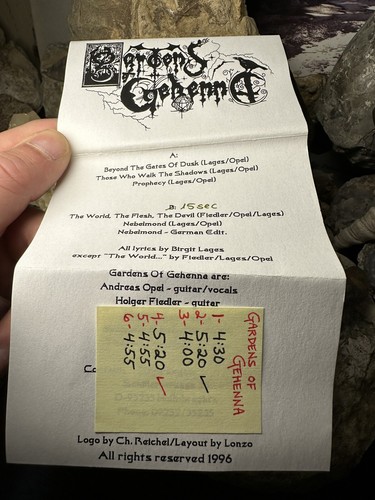 Gardens
of
Gehenna
A:
Beyond The Gates Of Dusk (Lages/Opel)
Those Who Walk The Shadows (Lages/Opel)
Prophecy (Lages/Opel)
B: 15sec
The World, The Flesh, The Devil (Fiedler/Opel/Lages)
Nebelmond (Lages/Opel)
Nebelmond - German Edit.
All lyrics by Birgit Lages
except "The World..." by Fiedler/Lages/Opel
Gardens Of Gehenna are:
Andreas Opel - guitar/vocals
Holger Fiedler - guitar
Co
GARDENS OF
GEHENNA
1- 4:30
2- 5:20
3- 4:00
4- 5:20
5- 4:55
6- 4:55
Logo by Ch. Reichel/Layout by Lonzo
All rights reserved 1996